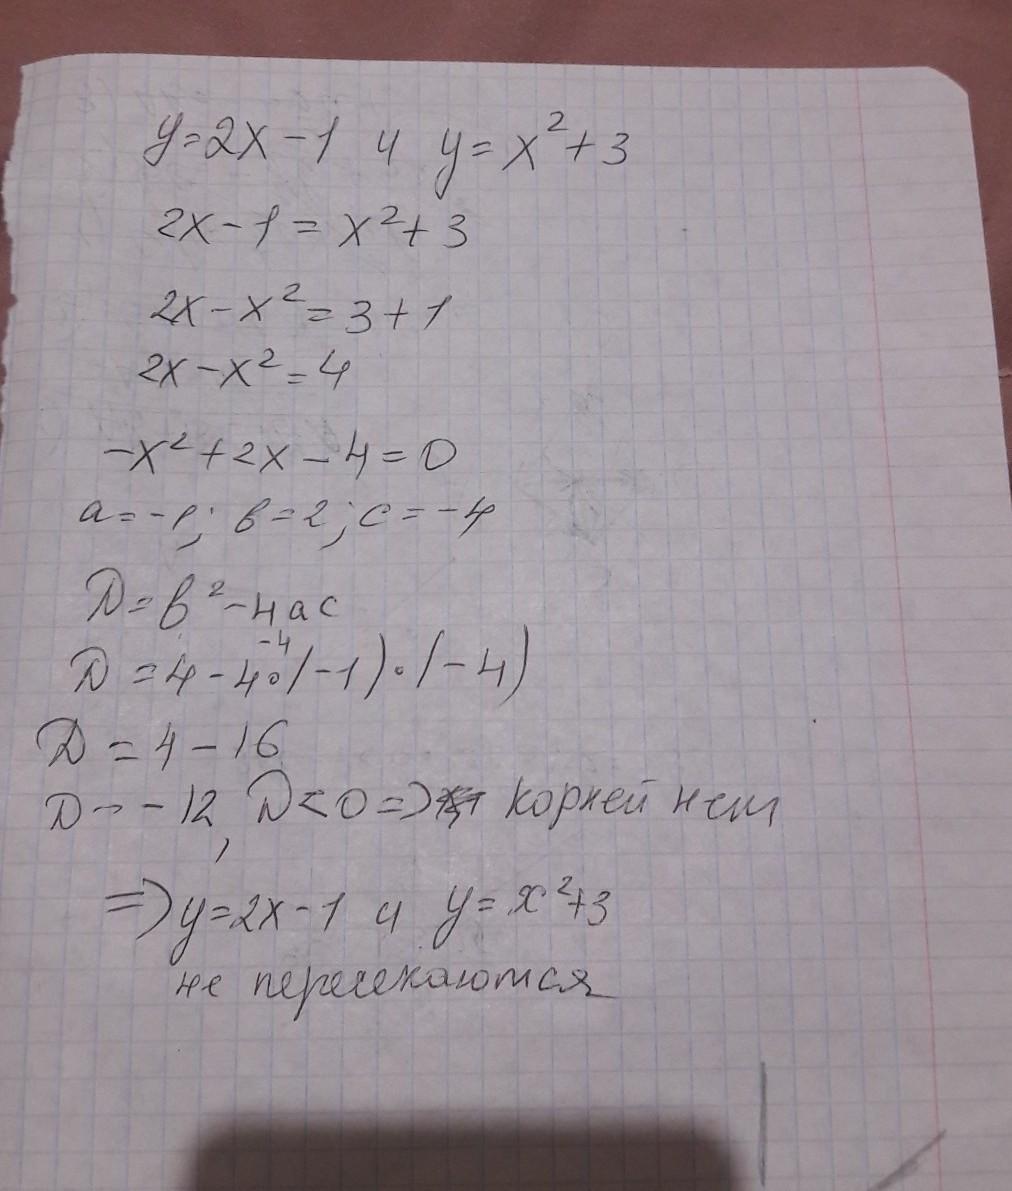 y=2x-1 и y=x²+3
2x-1=x²+3
2x-x²=3+1
2x-x²=4
-x²+2x-4=0
a=-1; b=2; c=-4
D=b²-4ac
-4
D=4-4·(-1)·(-4)
D=4-16
D=-12, D<0=> корней нет
=>y=2x-1 и y=x²+3
не пересекаются